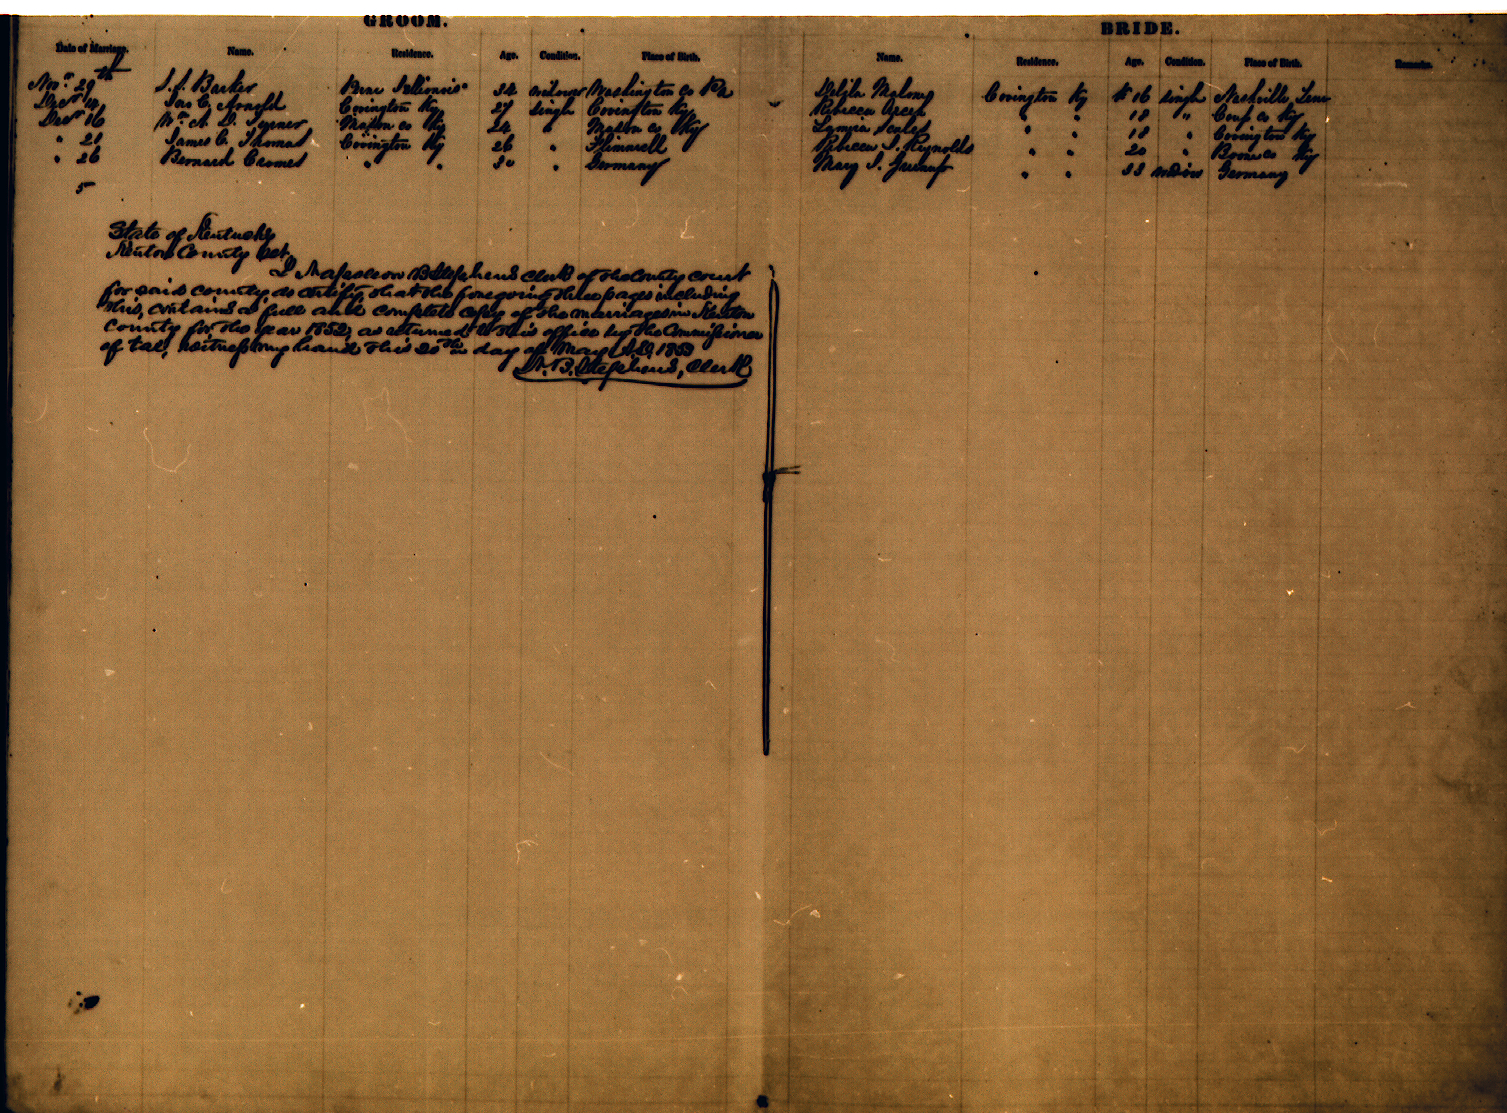 GROOM. BRIDE.
Date of Marriage. Name. Residence. Age. Condition. Place of Birth. Name. Residence. Age. Condition. Place of Birth. Remarks.
Novr. 29th Barker 34 widower Washington Co Pa Delila Maloney Covington Ky 16 single Nashville Tenn
Decr 14 Jas C. Arnold Covington Ky 27 single Covington Ky Rebecca " " 18 " Co Ky
Decr 16 Wm A. D. Turner Mason co Ky 24 " Mason co Ky Scales " " 18 " Covington Ky
" 21 James C. Thomas Covington Ky 26 " Rebecca J. Reynolds " " 20 " Boone co Ky
" 26 Bernard Cromes " " 30 " Germany Mary 33 widow Germany
5
State of Kentucky
Kenton County Sct
I Napoleon B Stephens clerk of the County court
for said county, do certify that the foregoing three pages including
this, contains a full and complete copy of the marriages in Kenton
county for the year 1852, as returned to this office by the Commissioner
of tax, witness my hand this 20th day of May A.D. 1853
N. B. Stephens, Clerk